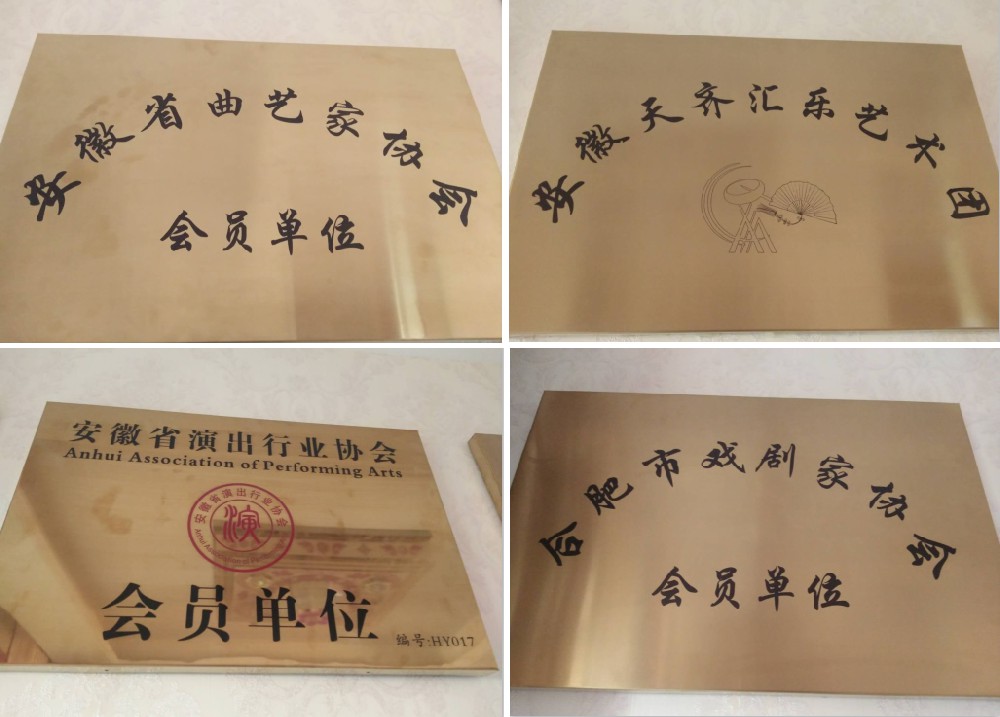 安徽省曲艺家协会
会员单位
安徽天齐汇乐艺术团
安徽省演出行业协会
Anhui Association of Performing Arts
安徽省演出行业协会
演
会员单位
编号:HY017
合肥市戏剧家协会
会员单位